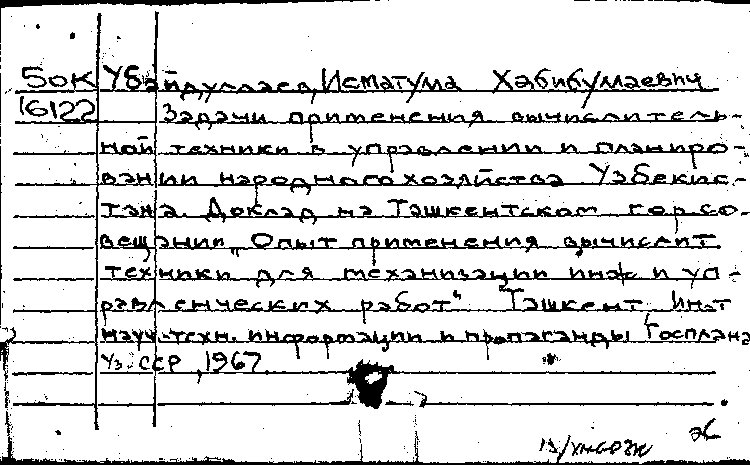 50К Убайдуллаев, Исматулла Хабибуллаевич
16122 Задачи применения вычислитель-
ной техники в управлении и планиро-
вании народного хозяйства Узбекис-
тана. Доклад на Ташкентском гор. со-
вещании „Опыт применения вычислит.
техники для механизации инж и уп-
равленческих работ“ Ташкент, Ин-т
науч.-техн. информации и пропаганды Госплана
УзССР, 1967.